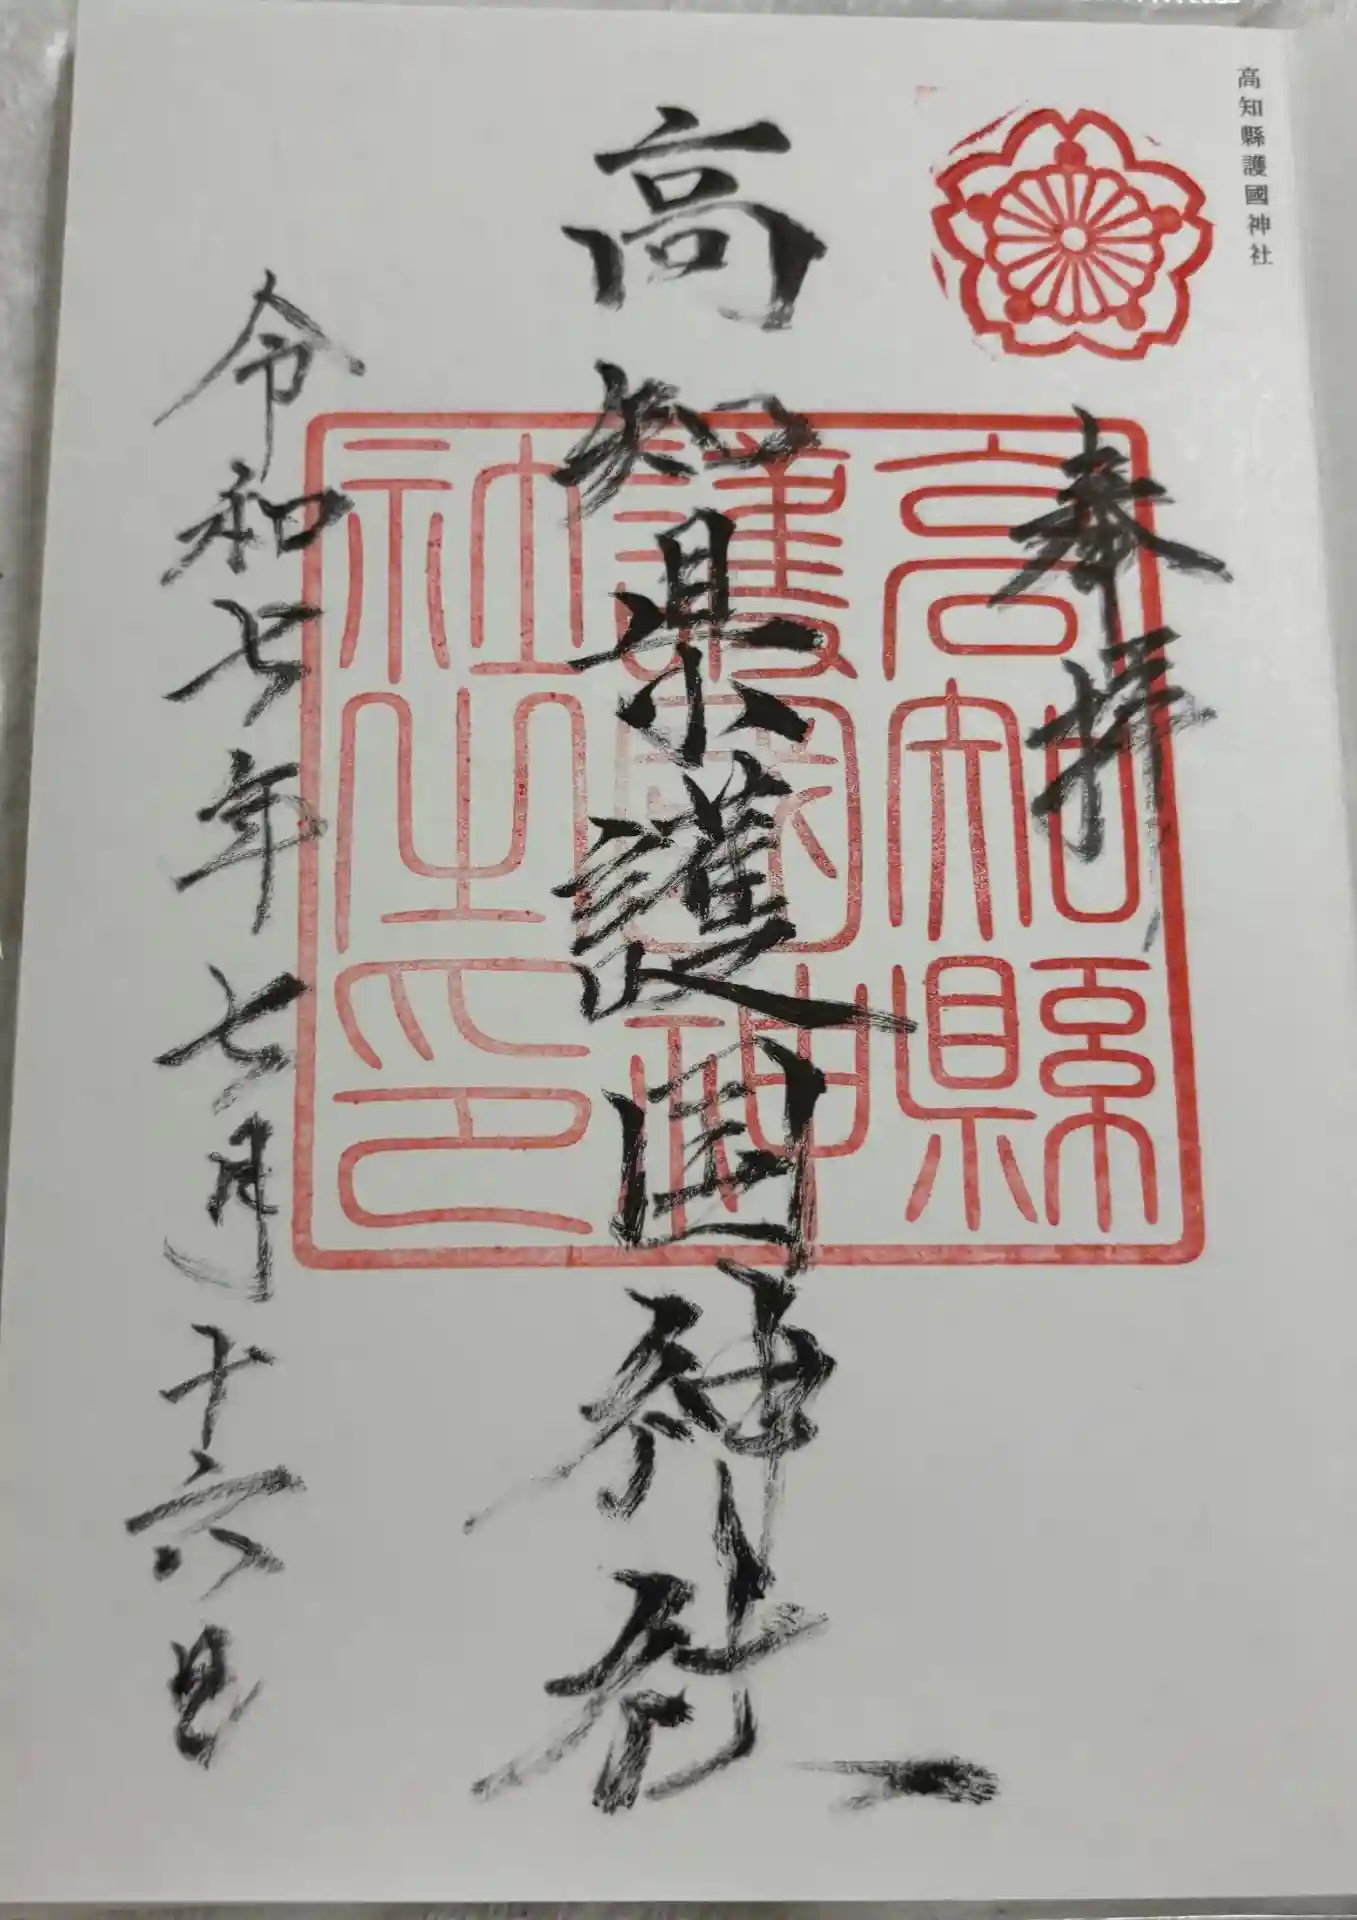 高知縣護國神社
奉拝
高知県護国神社
令和七年七月十六日
高知縣
護國神
社之印